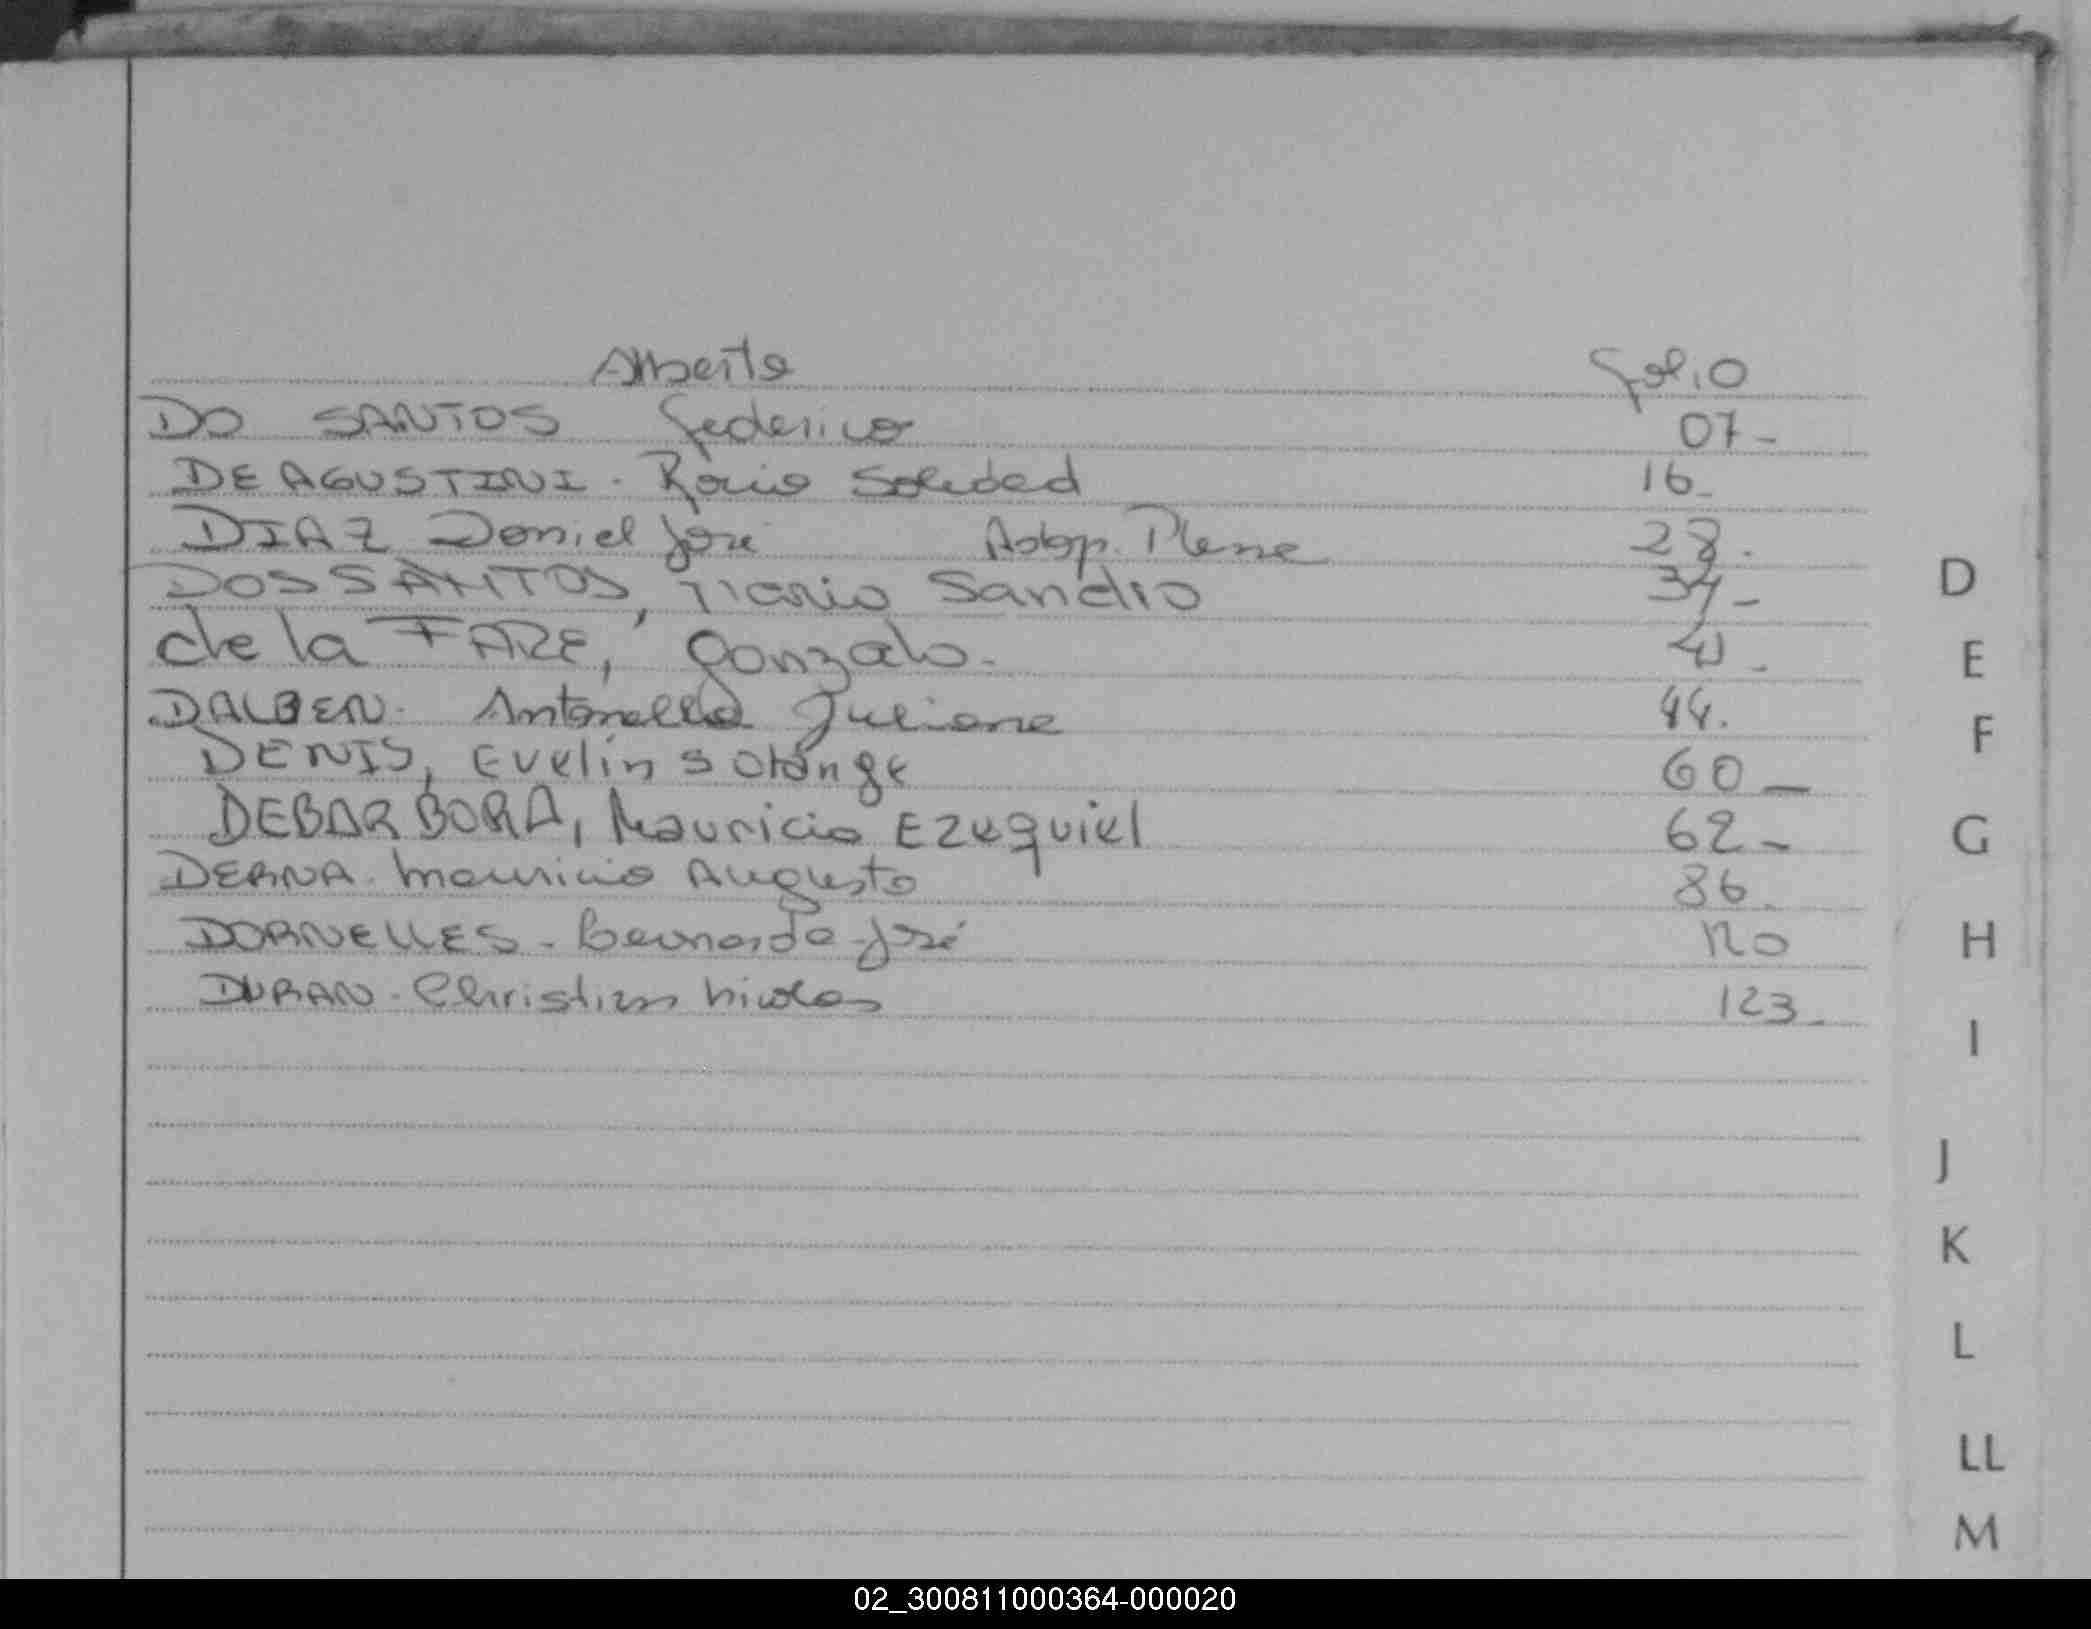 Alberto Folio
DO SANTOS Federico 07-
DE AGUSTINI. Rocio Soledad 16-
DIAZ Daniel José Adop. Plena 28.
DOS SANTOS, Mario Sandro 34-
de la FARE, Gonzalo. 40-
DALBEN. Antonella Juliana 44.
DENIS, Evelin Solange 60-
DEBARBORA, Mauricio Ezequiel 62-
DERNA. Mauricio Augusto 86.
DORNELLES - Bernardo José 120
DURAN - Christian Nicolas 123-
D
E
F
G
H
I
J
K
L
LL
M
02_300811000364-000020